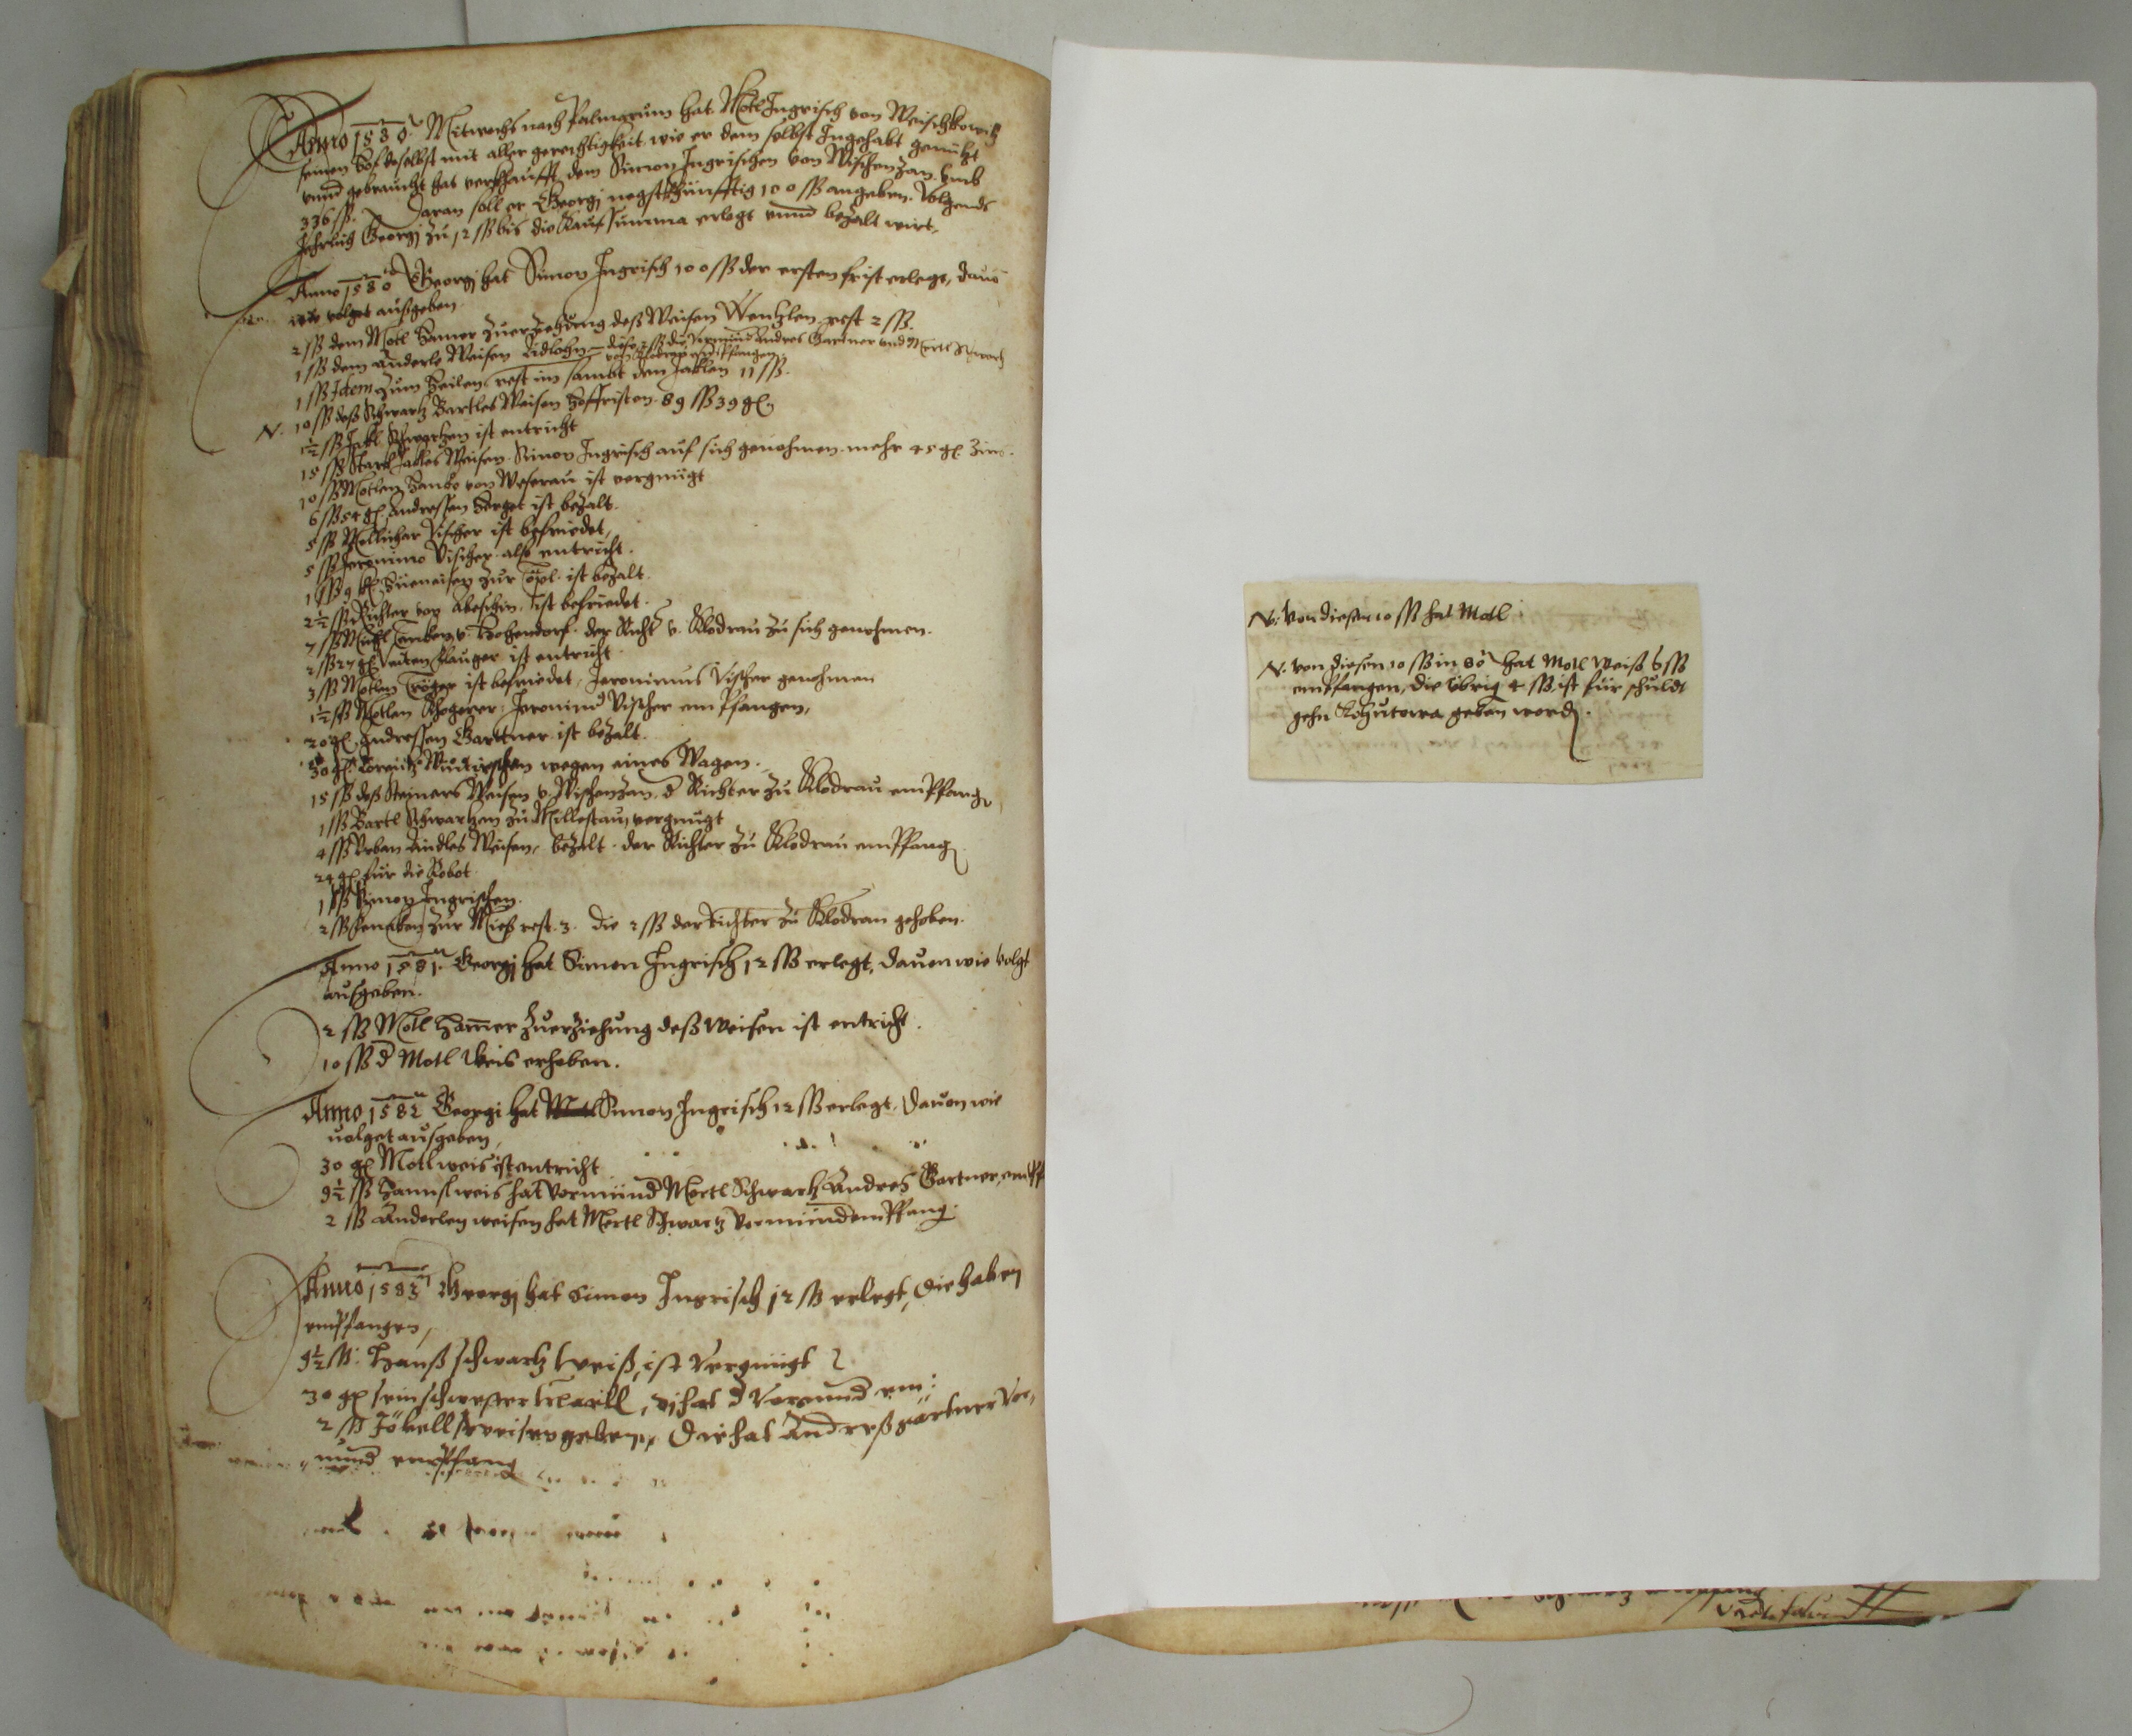 Anno 1580 Mitwochs nach Palmarum hat Motl Ingrisch von Weischkowitz
seinen Hof doselbst mit aller gerechtigkeit, wie er dem selbst Ingehabt genützt
vnnd gebraucht hat verkhaufft dem Simon Ingrischen von Wischenzan vmb
336 ſß. Daran soll er Georgj negstkhünfftig 100 ſß angeben. Volgends
Jehrlich Georgj zu 12 ſß bis die Kauf Summa erlegt vnnd bezalt wirt.
Anno 1580 Georgj hat Simon Ingrisch 100 ſß der ersten frist erlegt, dauon
wie volget außgeben.
2 ſß dem Motl Hamer zuerziehung deß Weisen Wenzlen rest 2 ſß.
1 ſß dem Anderle Weisen Lidlohn diese ſß die Vormund Andres Gartner vnd Mertl Schwartz
von Klodrau empfangen
1 ſß Idem zum Heilen rest im sambt dem Jaklen 11 ſß.
N. 10 ſß deß Schwartz Bartles Weisen Hoffristen 89 ſß 39 gl
1½ ſß Jakl Schwartzen ist entricht
15 ſß Stark Jakles Weisen Simon Ingrisch auf sich genohmen mehr 45 gl Zins.
10 ſß Motlen Hanko von Weserau ist vergnügt
6 ſß 54 gl Andressen Herget ist bezalt.
5 ſß Melicher Vischer ist befriedet,
5 ſß Jeronimo Vischer also entricht.
1 ſß 9 gl Züeneisen zur Töpl ist bezalt.
2½ ſß Richter von Abeschin ist befriedet.
7 ſß Michl Lenken v. Hohendorf der Richt v. Klodrau zu sich genohmen.
2 ſß 27 gl Veiten Klauger ist entricht.
3 ſß Motlen Tröger ist befriedet, Jeronimus Vischer genohmen
1½ ſß Motlen Schogerer Jeronimus Vischer empfangen,
20 gl Andressen Gartner ist bezalt.
30 gl Lorentz wegen eines Wagen.
15 ſß deß Steiners Weisen v. Wischenzan d Richter zu Klodrau empfang
1 ſß Bartl Schwartzen zu Millestau, vergnügt
4 ſß Vrban Lindles Weisen, bezalt der Richter zu Klodrau empfang
24 gl für die Robot
1 ſß Simon Ingrischen.
2 ſß zur Mies rest 3. die 2 ſß der Richter zu Klodrau gehoben.
Anno 1581 Georgj hat Simon Ingrisch 12 ſß erlegt, dauon wie volgt
ausgeben.
2 ſß Motl Hamer zuerziehung deß Weisen ist entricht.
10 ſß d Motl Weis erhoben.
Anno 1582 Georgi hat Simon Ingrisch 12 ſß erlegt, dauon wie
uolget ausgeben,
30 gl Motl weis ist entricht
9½ ſß Hannsl weis hat Vormünd Mertl Schwartz Andres Gartner, empf
2 ſß Anderlen weisen hat Mertl Schwartz Vormünd empfang.
Anno 1583 Georgj hat Simon Ingrisch 12 ſß erlegt, die haben
empfangen,
9½ ſß: Hanß schwartz Weiß, ist vergnügt
30 gl sein schwester, hat d Vormünd em:
2 ſß Jökell geben, die hat Andreß gartner Vor„
münd empfang
N. Von diesen 10 ſß hat Motl
N. von diesen 10 ſß in 80 hat Motl Weiß 6 ſß
empfangen, die übrig 4 ſß ist für schuldt
gehn geben word.